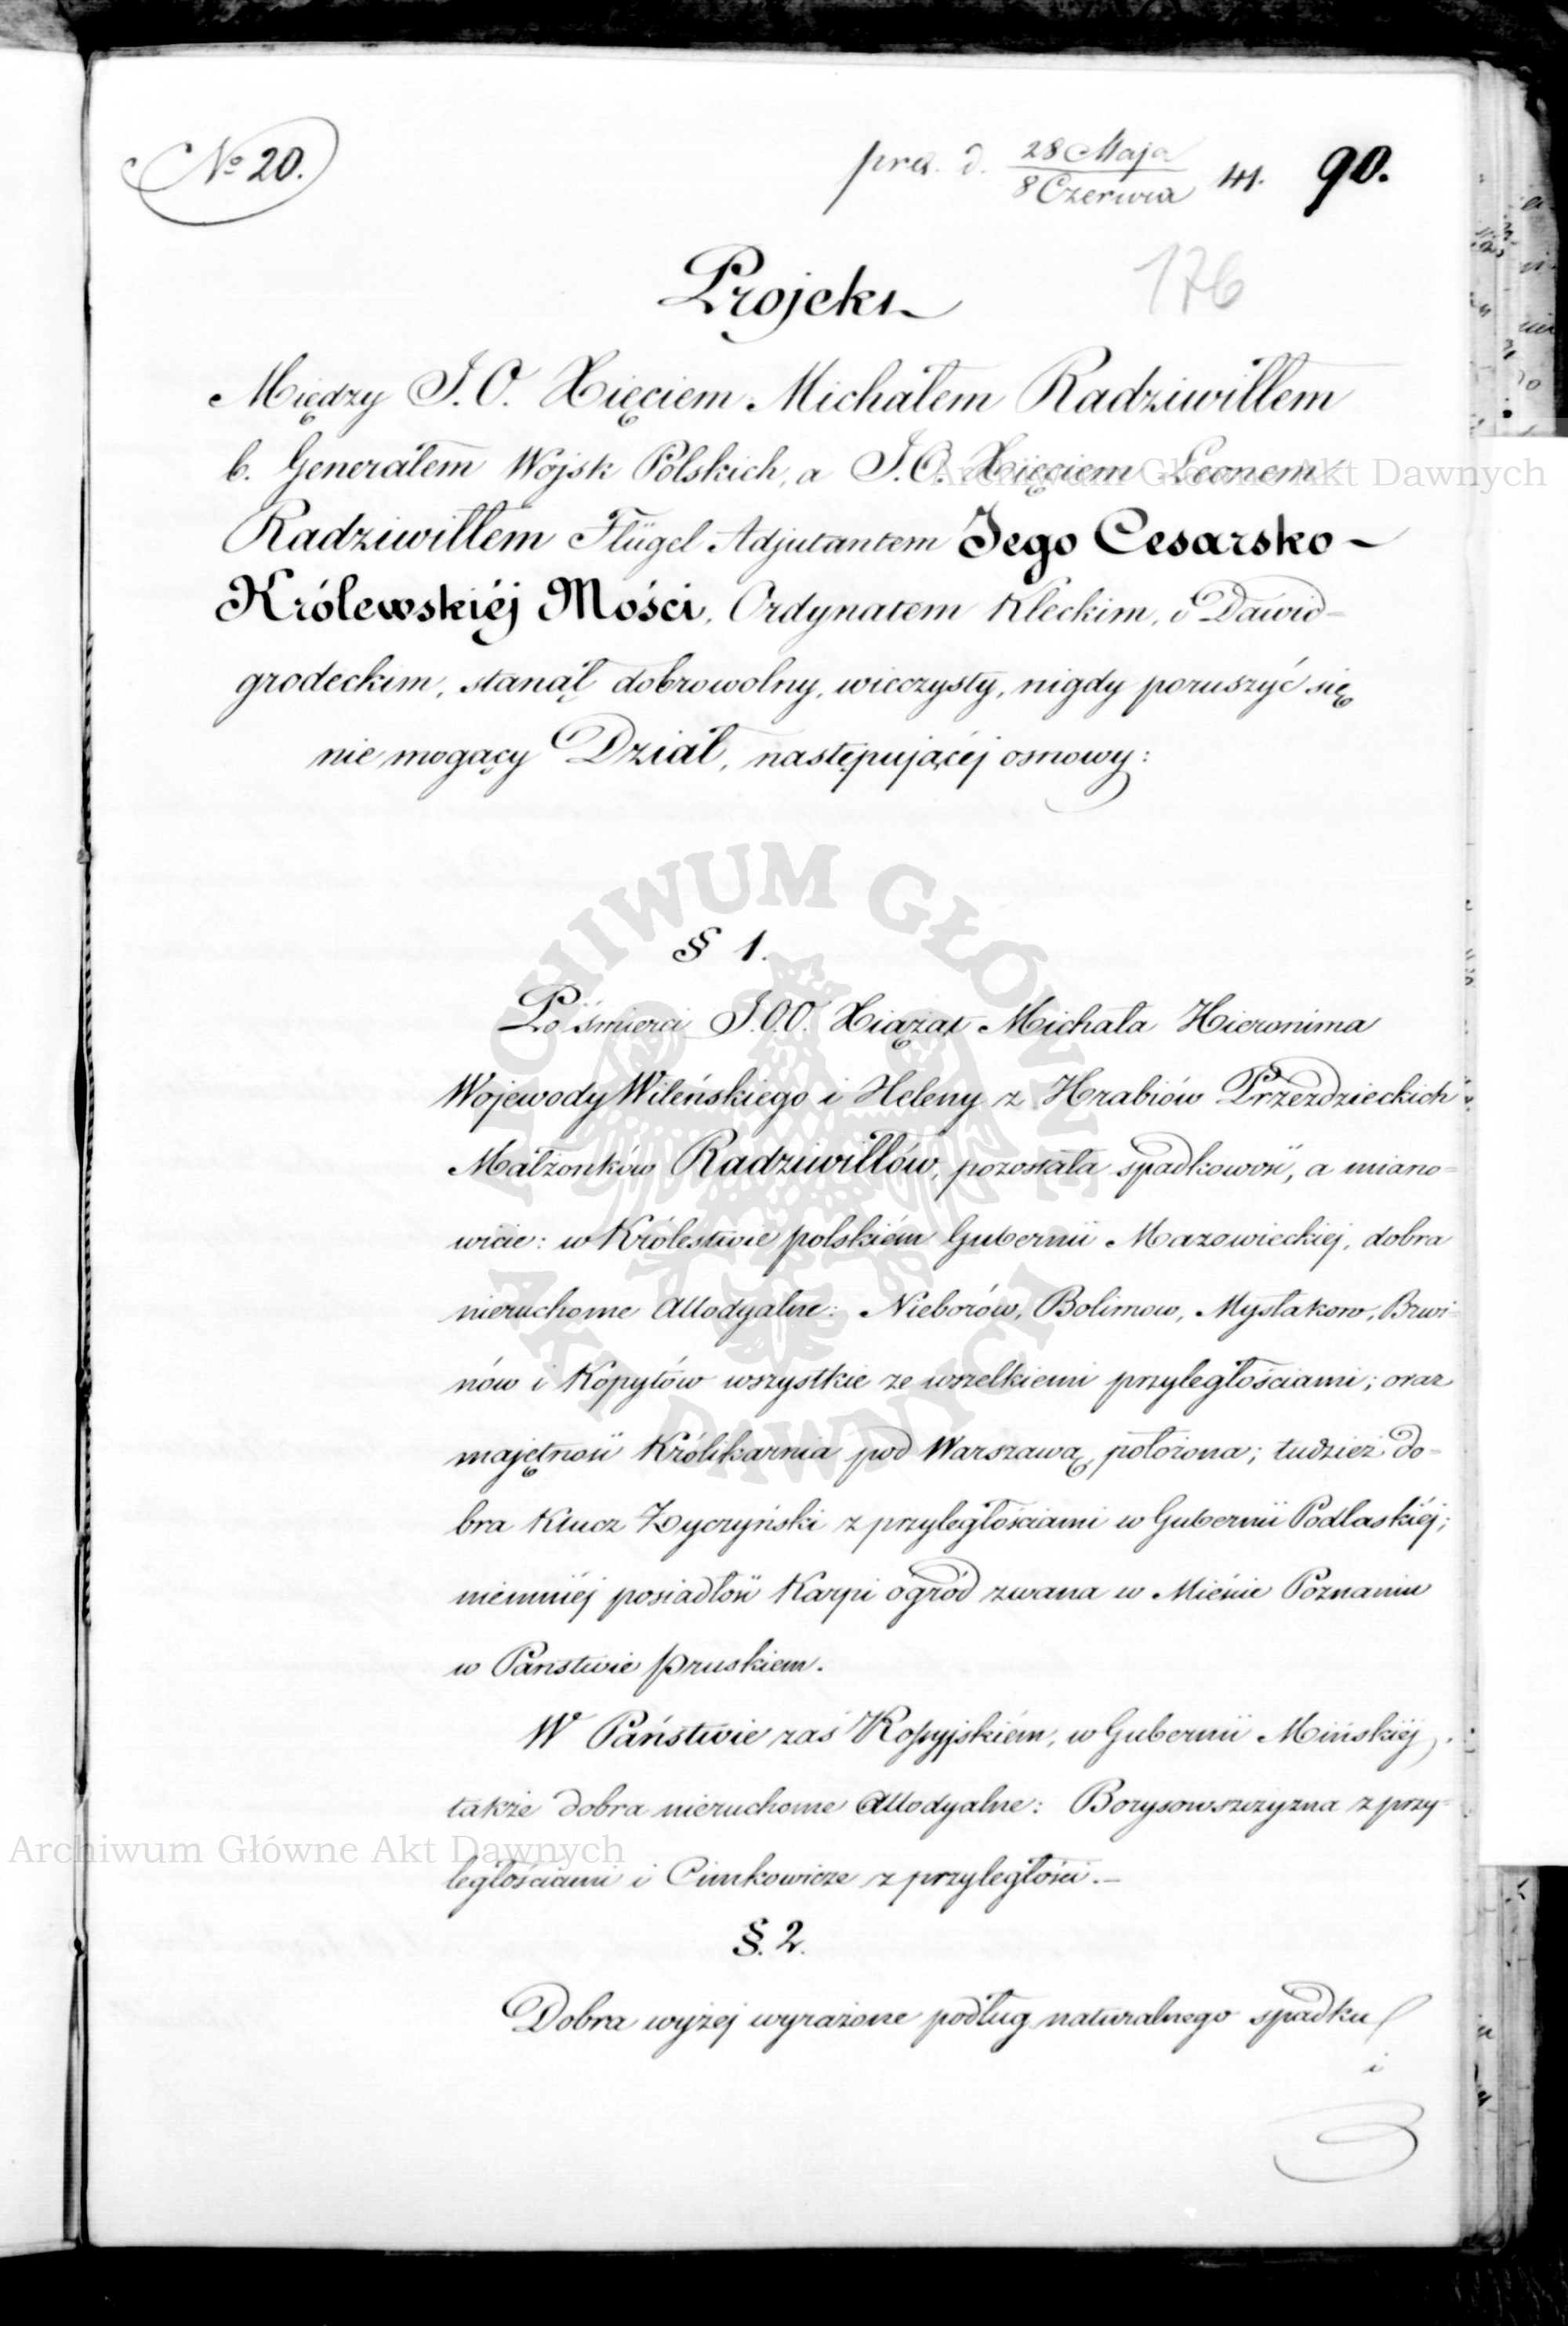 № 20.
pres. d. 28 Maja / 8 Czerwca 41. 90.
176
Projekt
Między J. O. Xięciem Michałem Radziwiłłem
b. Generałem Wojsk Polskich, a J. O. Xięciem Leonem
Radziwiłłem Flügel Adjutantem Jego Cesarsko-
Królewskiéj Mości, Ordynatem Kleckim, i Dawid=
grodeckim, stanął dobrowolny, wieczysty, nigdy poruszyć się
nie mogący Dział, następującéj osnowy:
§ 1.
Po śmierci J.O.O. Xiążąt Michała Hieronima
Wojewody Wileńskiego i Heleny z Hrabiów Przezdzieckich
Małżonków Radziwiłłów, pozostała spadkowość, a miano=
wicie: w Królestwie polskiém Gubernii Mazowieckiej, dobra
nieruchome Allodyalne: Nieborów, Bolimow, Mysłakow, Brwi=
nów i Kopytów wszystkie ze wszelkiemi przyległościami; oraz
majętność Królikarnia pod Warszawą położona; tudzież do=
bra Klucz Życzyński z przyległościami w Gubernii Podlaskiéj;
niemniéj posiadłość Karpi ogród zwana w Mieście Poznaniu
w Państwie pruskiem.
W Państwie zaś Rossyjskiém, w Gubernii Mińskiéj,
także dobra nieruchome Allodyalne: Borysowszczyzna z przy=
ległościami i Cimkowicze z przyległości.—
§. 2.
Dobra wyżej wyrażone podług naturalnego spadku
i
Archiwum Główne Akt Dawnych
Archiwum Główne Akt Dawnych
ARCHIWUM GŁÓWNE AKT DAWNYCH